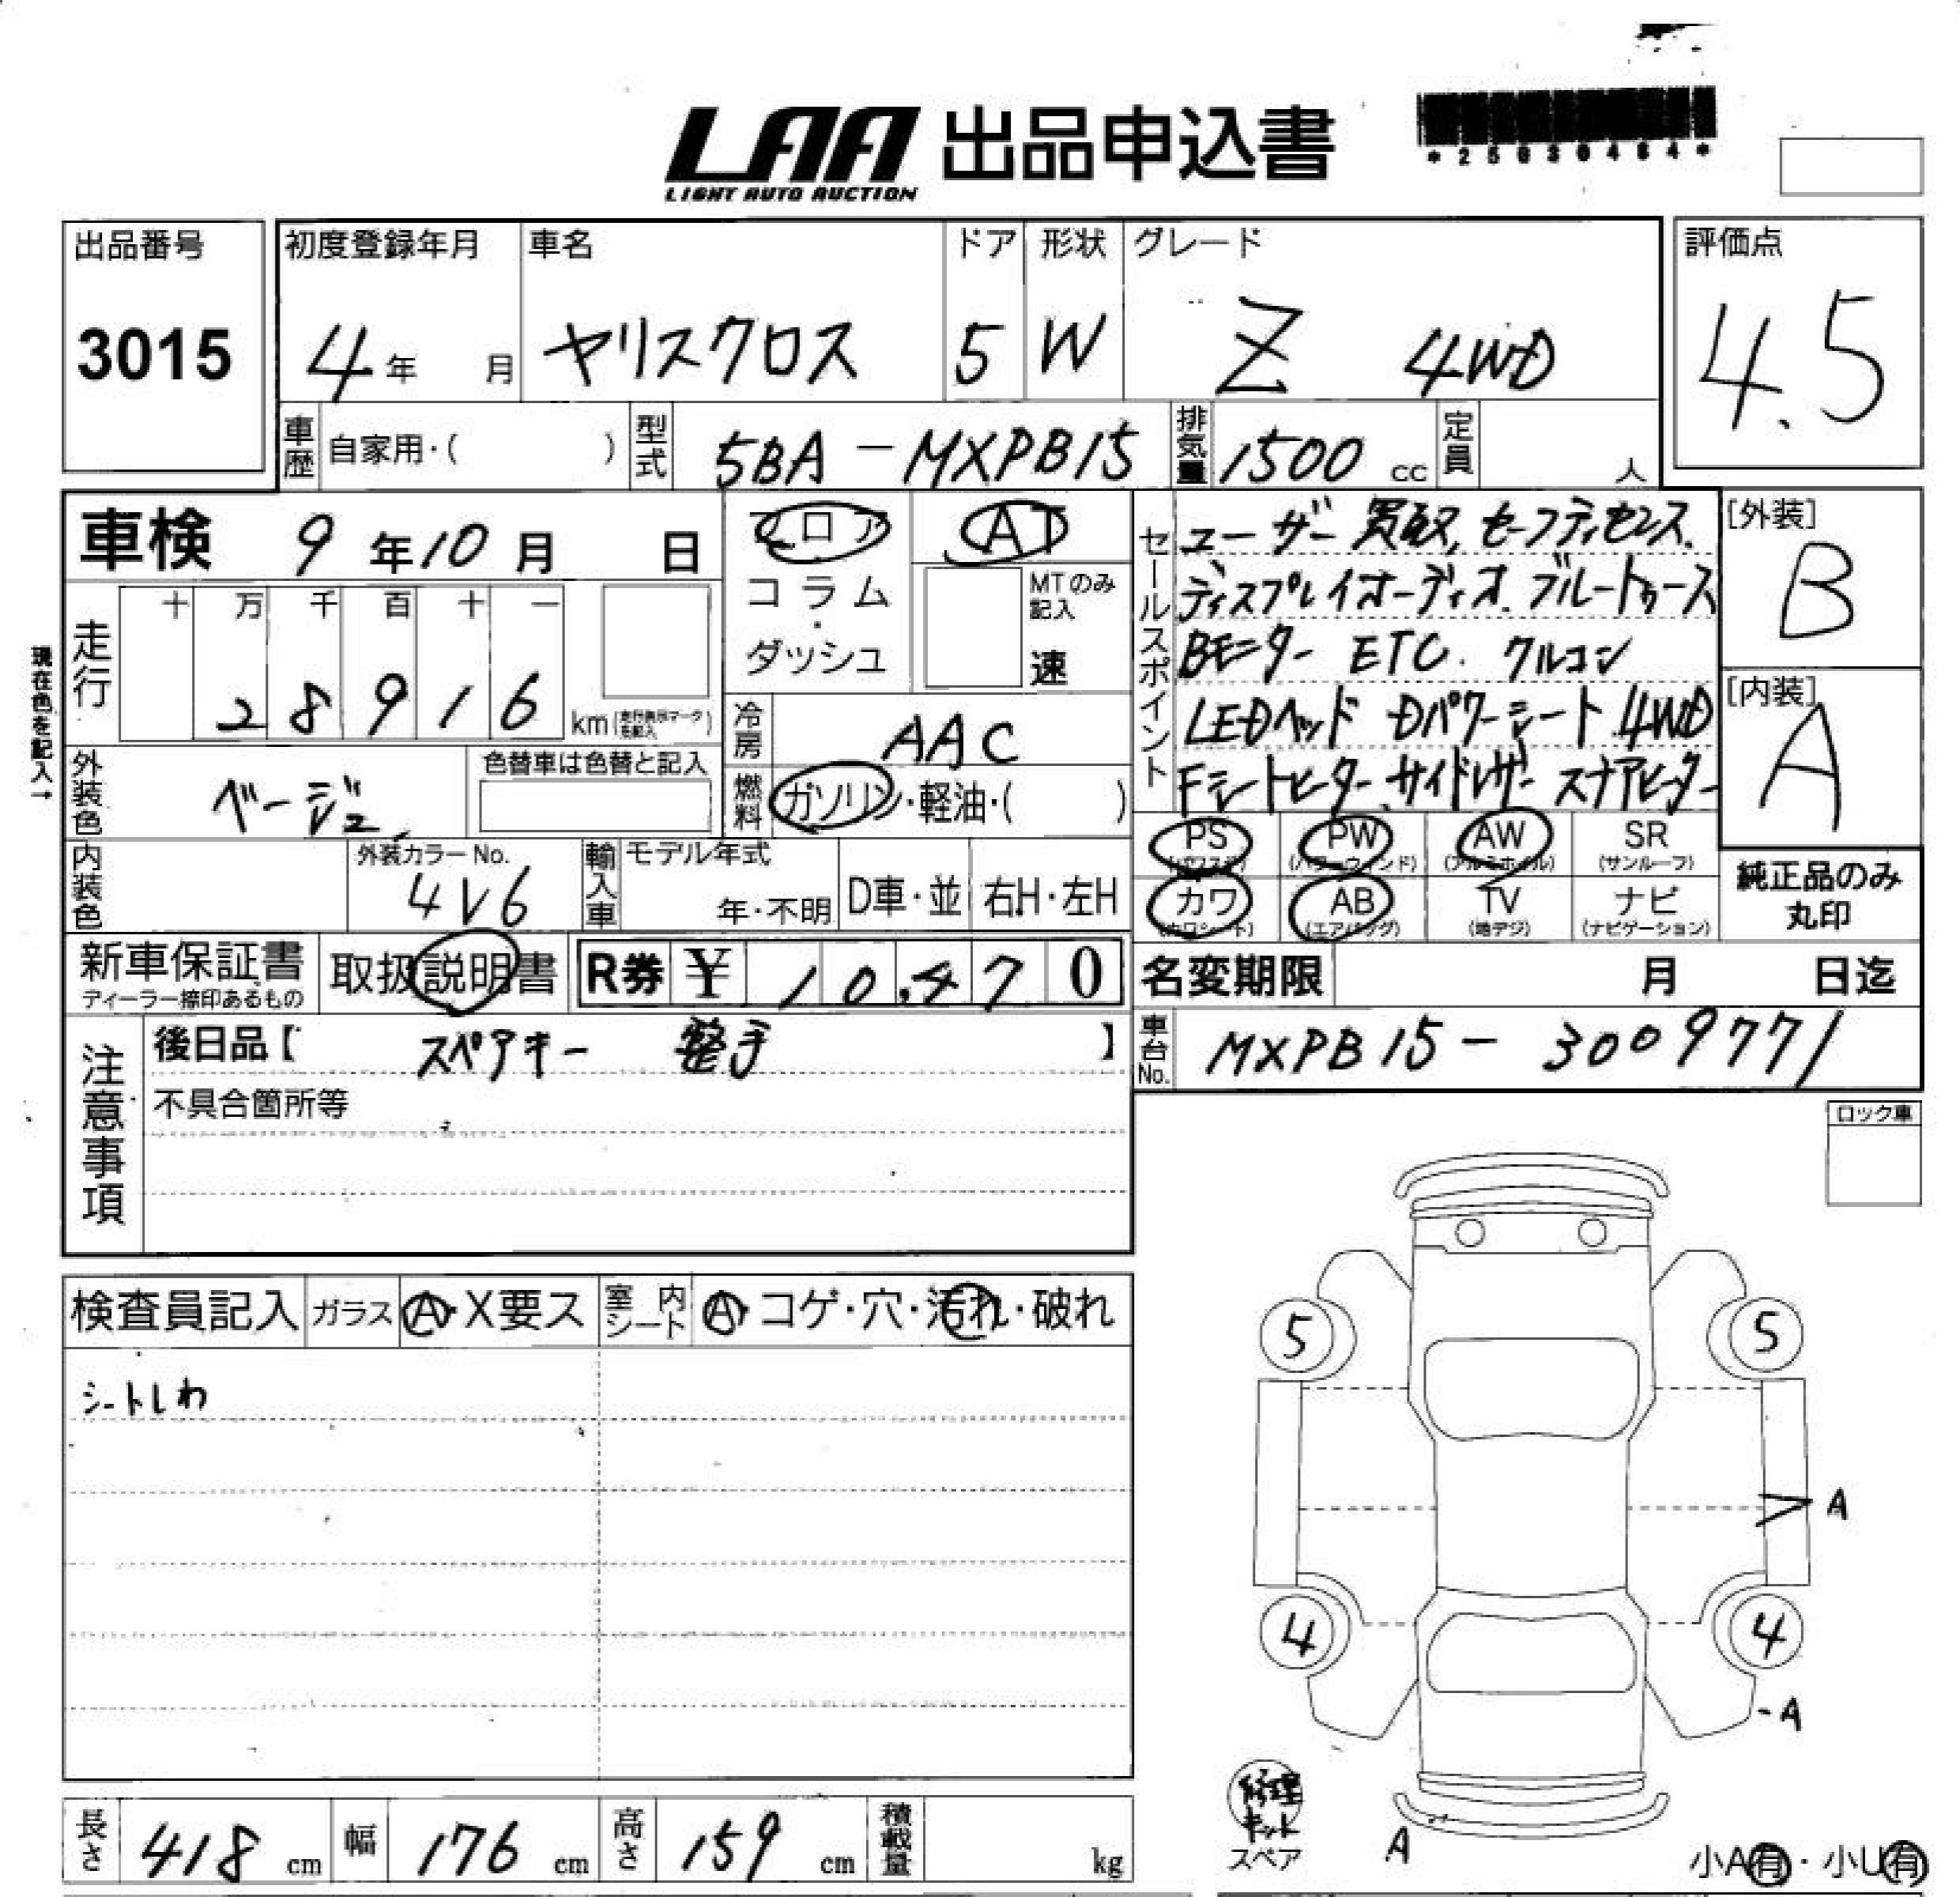 LAA 出品申込書
LIGHT AUTO AUCTION
*25030464*
出品番号
3015
初度登録年月
4年 月
車名
ヤリスクロス
ドア
5
形状
W
グレード
Z 4WD
評価点
4.5
車歴 自家用・( )
型式 5BA-MXPB15
排気量 1500 cc
定員 人
車検 9年10月 日
現在色を記入→
走行
十 万 千 百 十 一
2 8 9 1 6 km
外装色 ベージュ
色替車は色替と記入
内装色
外装カラーNo.
4V6
輸入車
モデル年式
年・不明
D車・並
右H・左H
フロア
コラム
・
ダッシュ
AT
MTのみ
記入
速
冷房 AAC
燃料 ガソリン・軽油・( )
セールスポイント
ユーザー買取, セーフティセンス.
ディスプレイオーディオ. ブルートゥース
Bモニター ETC. クルコン
LEDヘッド Dパワーシート 4WD
Fシートヒーター サイドレザー スナアヒーター
[外装]
B
[内装]
A
PS
(パワステ)
PW
(パワーウィンド)
AW
(アルミホイル)
SR
(サンルーフ)
カワ
(カワシート)
AB
(エアバッグ)
TV
(地デジ)
ナビ
(ナビゲーション)
純正品のみ
丸印
新車保証書
ディーラー捺印あるもの
取扱説明書
R券 ¥ 10,470
名変期限 月 日迄
車台No. MXPB15-3009771
注意事項
後日品【 スペアキー 整手 】
不具合箇所等
ロック車
検査員記入
ガラス A・X要ス
室内シート A・コゲ・穴・汚れ・破れ
シートしわ
5
5
A
4
4
A
修理
キット
スペア
A
小A有・小U有
長さ 418 cm
幅 176 cm
高さ 159 cm
積載量 kg